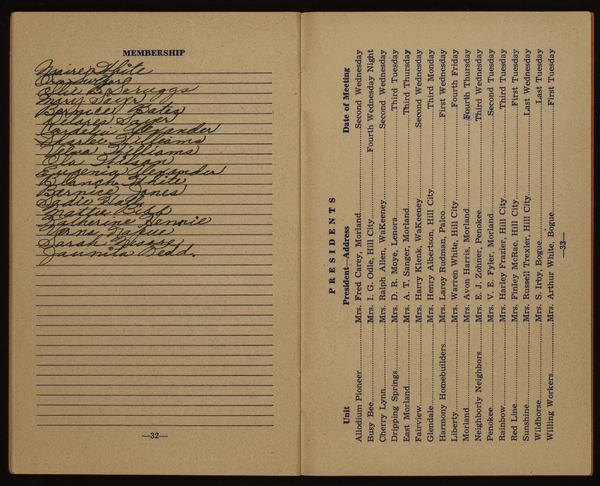 MEMBERSHIP
White
Ora Switzer
Ollie B Scruggs
Mary Sayers
Bernice Bates
Sayer
Cordelia Alexander
Charlee Williams
Elva Williams
Ora Wilson
Eugenia Alexander
Blanch White
Bernice Jones
Sadie Hall
Mattie Bibb
Katherine Hennie
Verna Napue
Sarah Moore
Juanita Redd.
—32—
PRESIDENTS
Unit President—Address Date of Meeting
Allodium Pioneer Mrs. Fred Carey, Morland Second Wednesday
Busy Bee Mrs. I. G. Odle, Hill City Fourth Wednesday Night
Cherry Lynn Mrs. Ralph Allen, WaKeeney Second Wednesday
Dripping Springs Mrs. D. R. Moye, Lenora Third Tuesday
East Morland Mrs. A. T. Sanger, Morland Third Thursday
Fairview Mrs. Harry Klenk, WaKeeney Second Wednesday
Glendale Mrs. Henry Albertson, Hill City Third Monday
Harmony Homebuilders Mrs. Laroy Rudman, Palco First Wednesday
Liberty Mrs. Warren White, Hill City Fourth Friday
Morland Mrs. Avon Harris, Morland Fourth Thursday
Neighborly Neighbors Mrs. E. J. Zohner, Penokee Third Wednesday
Penokee Mrs. V. E. Fyler, Morland Second Tuesday
Rainbow Mrs. Harley Frazier, Hill City Third Tuesday
Red Line Mrs. Finley McRae, Hill City First Tuesday
Sunshine Mrs. Russell Trexler, Hill City Last Wednesday
Wildhorse Mrs. S. Irby, Bogue Last Tuesday
Willing Workers Mrs. Arthur White, Bogue First Tuesday
—33—